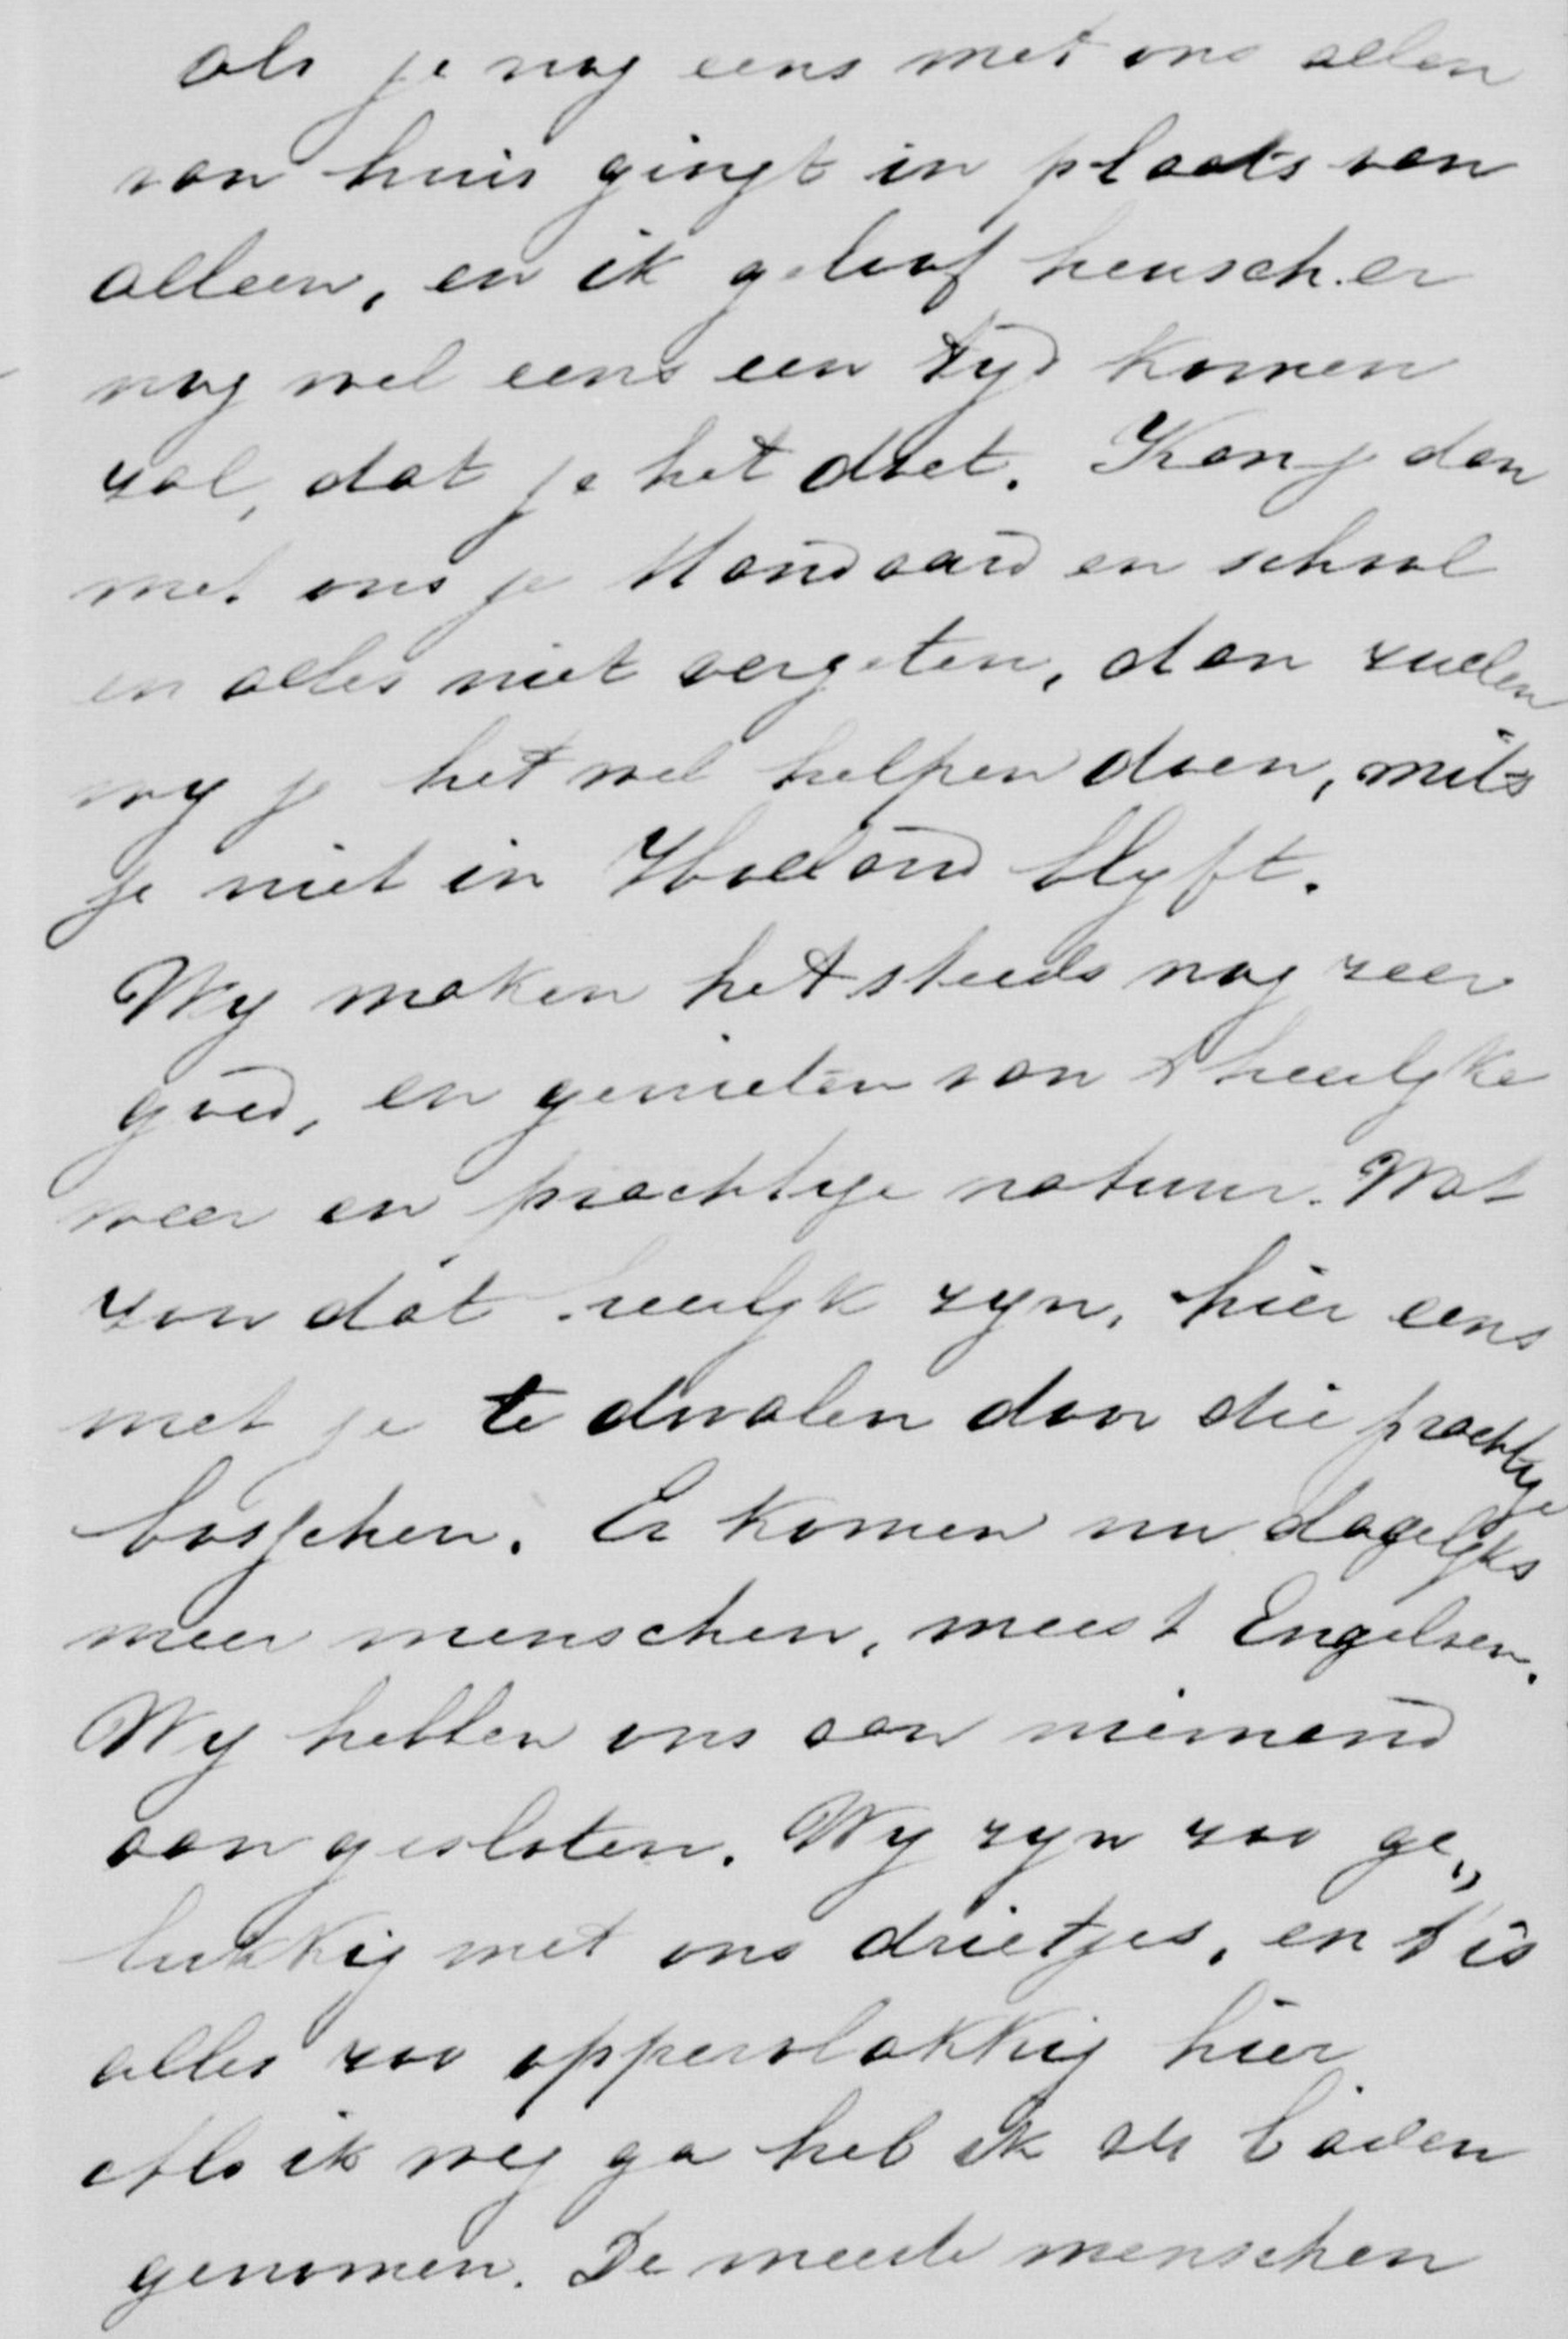 als je nog eens met ons allen
van huis gingt in plaats van
alleen, en ik geloof heusch er
nog wel eens een tyd komen
zal, dat je het doet. Kan je dan
met ons je Mondaard en school
en alles niet vergeten, dan zullen
wy je het wel helpen doen, mits
je niet in Holland blyft.
Wy maken het steeds nog zeer
goed, en genieten van 't heerlyke
weer en prachtige natuur. Wat
zou dat heerlyk zyn, hier eens
met je te dwalen door die prachtige
bosschen. Er komen nu dagelyks
meer menschen, meest Engelsen.
Wy hebben ons aan niemand
aan gesloten. Wy zyn zoo ge„
lukkig met ons drietjes, en 't is
alles zoo oppervlakkig hier
Als ik weg ga heb ik baden
genomen. De meeste menschen